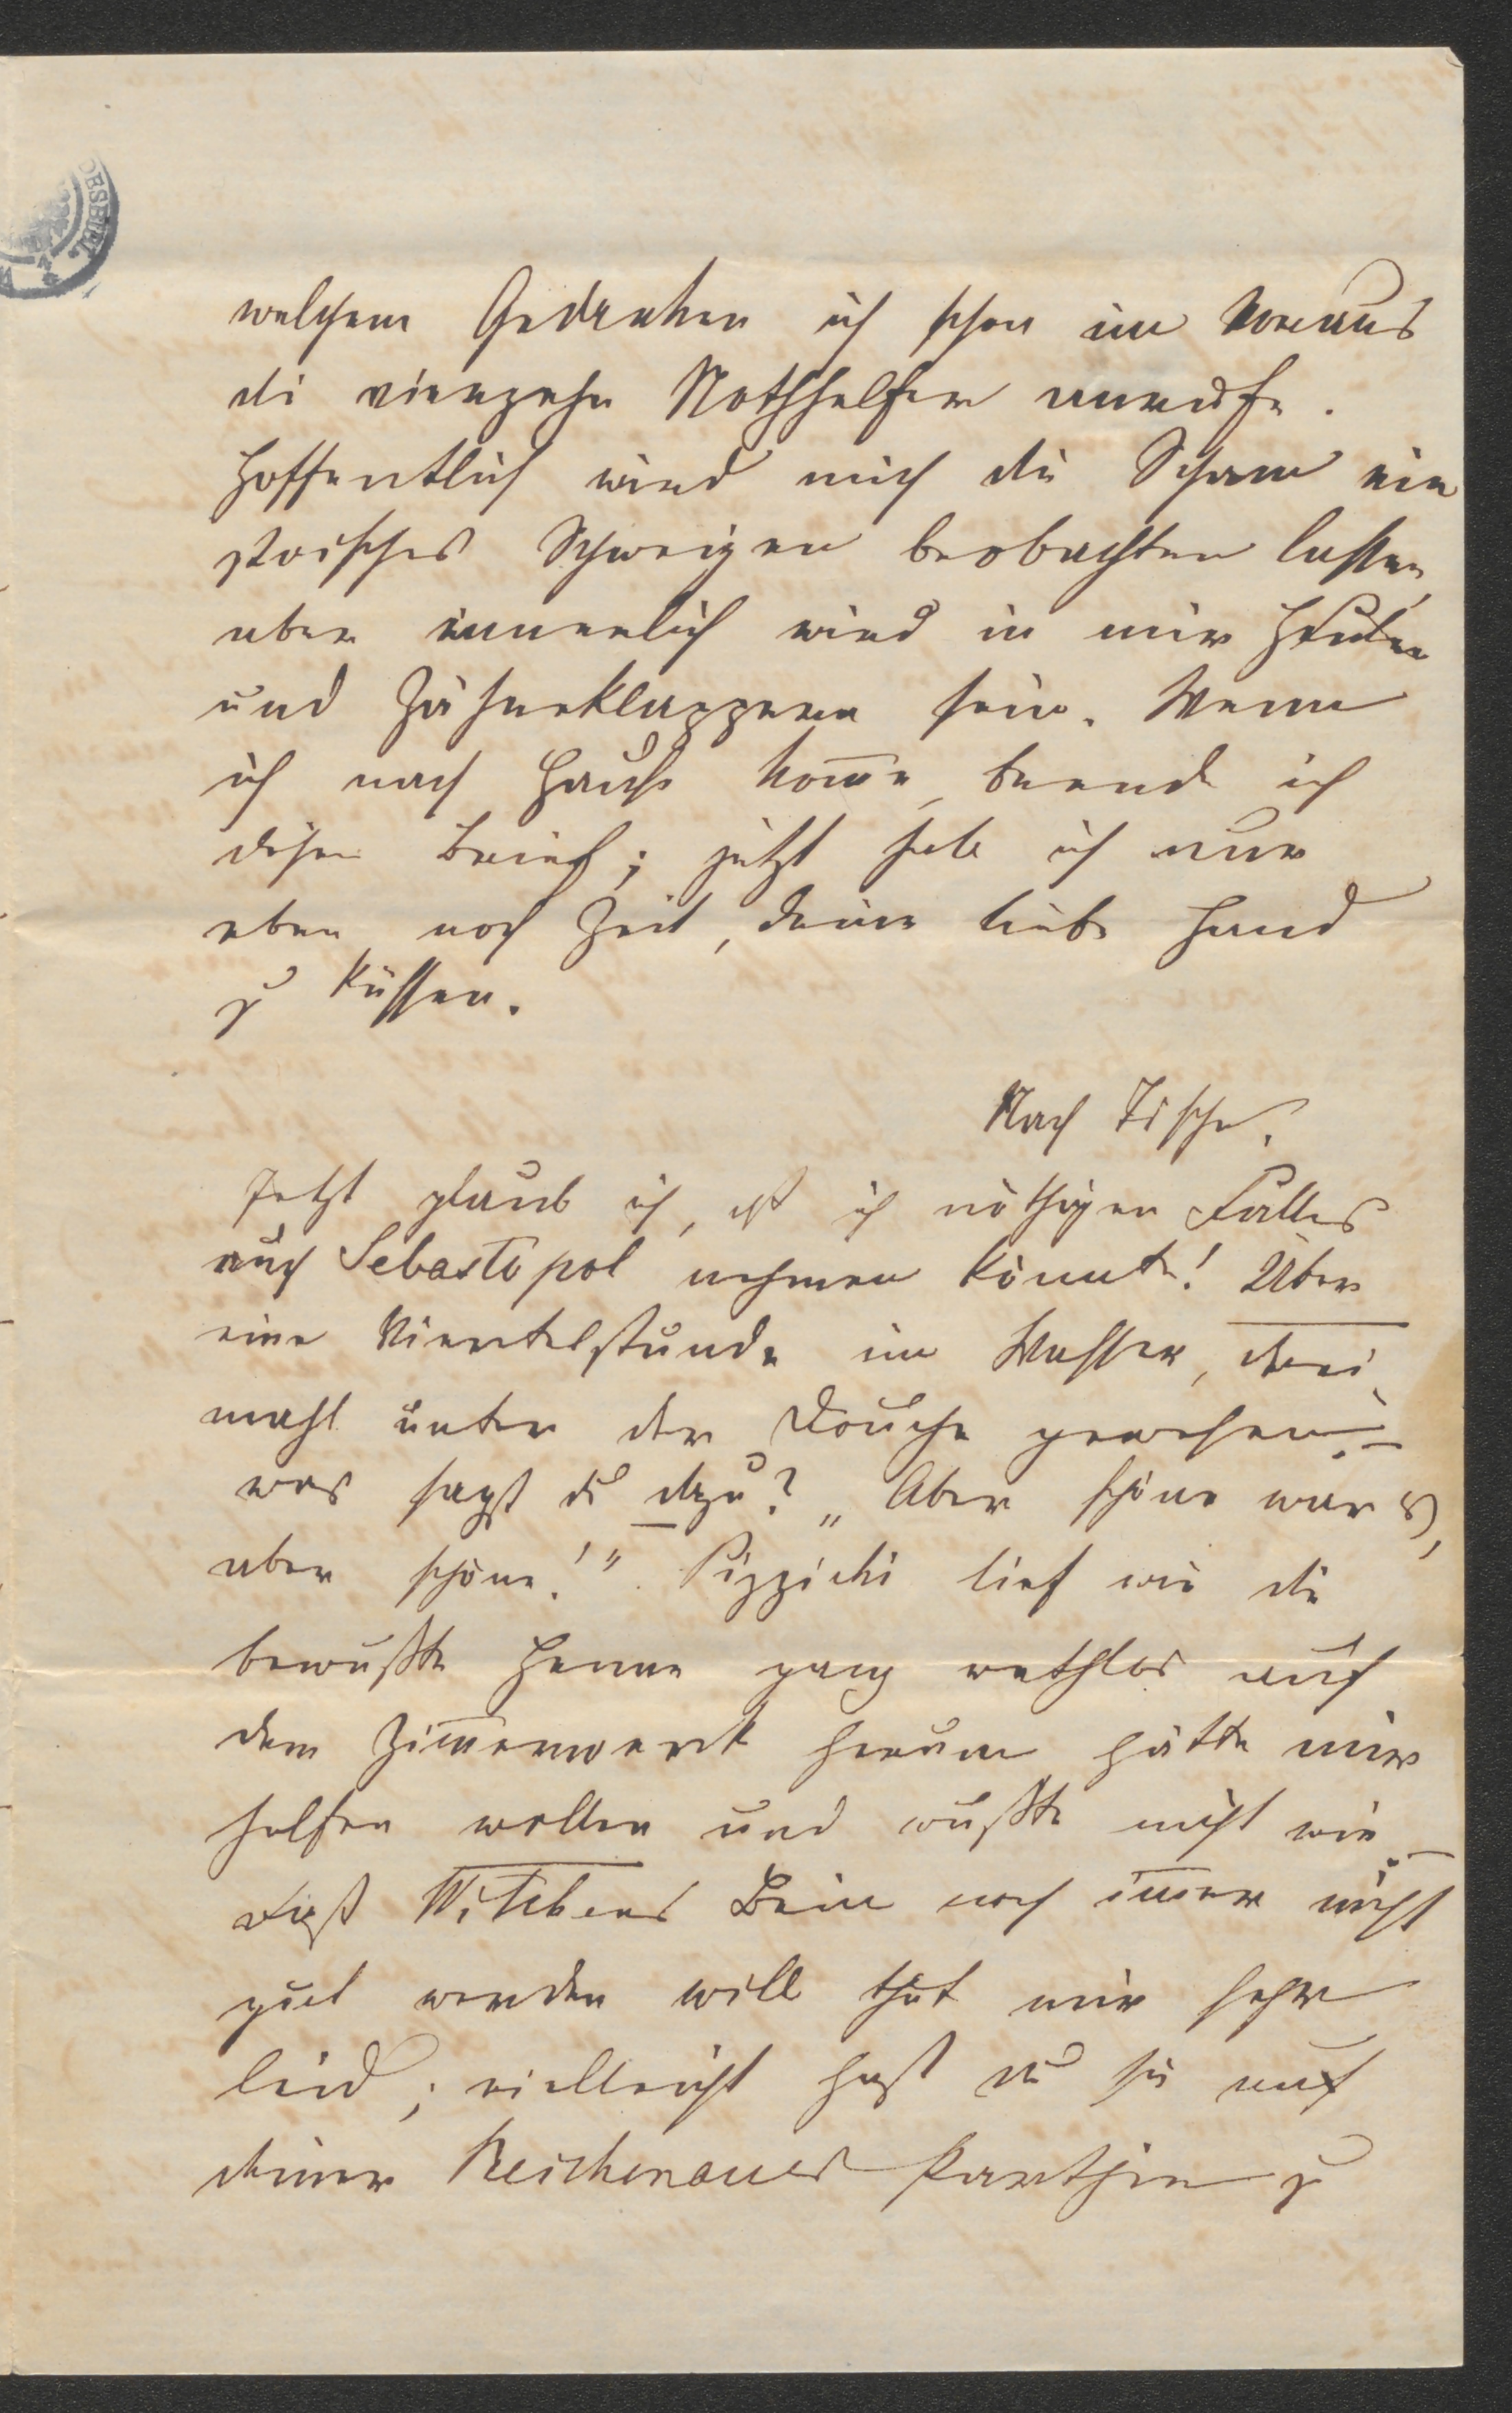 welchem Gedanken ich schon im Voraus
di vierzehn Nothhelfer anrufe.
Hoffentlich wird mich die Scham ein
stoisches Schweigen beobachten lassen,
aber innerlich wird in mir Heulen
und Zähneklappern sein. Wenn
ich nach Hause kom̅e, beende ich
disen Brief; jetzt habe ich nur
eben noch Zeit, deine liebe Hand
zu küssen.
Nach Tische.
Jetzt glaub ich, daß ich nöthigen Falles
auch Sebastopol nehmen könnte! Über
eine Viertelstunde im Wasser, drei
mahl unter der Douche gewesen –
was sagst du dazu? „Aber schöne war es,
aber schöne!" Pizzichi lief wie die
bewußte Henne ganz rathlos auf
dem Zim̅erwerk herum hätte mir
helfen wollen und wußte nicht wie –
Daß Bein noch im̅er nicht
gut werden will thut mir sehr
leid; vielleicht hast du sie auf
deiner Reichenauer Parthie zu